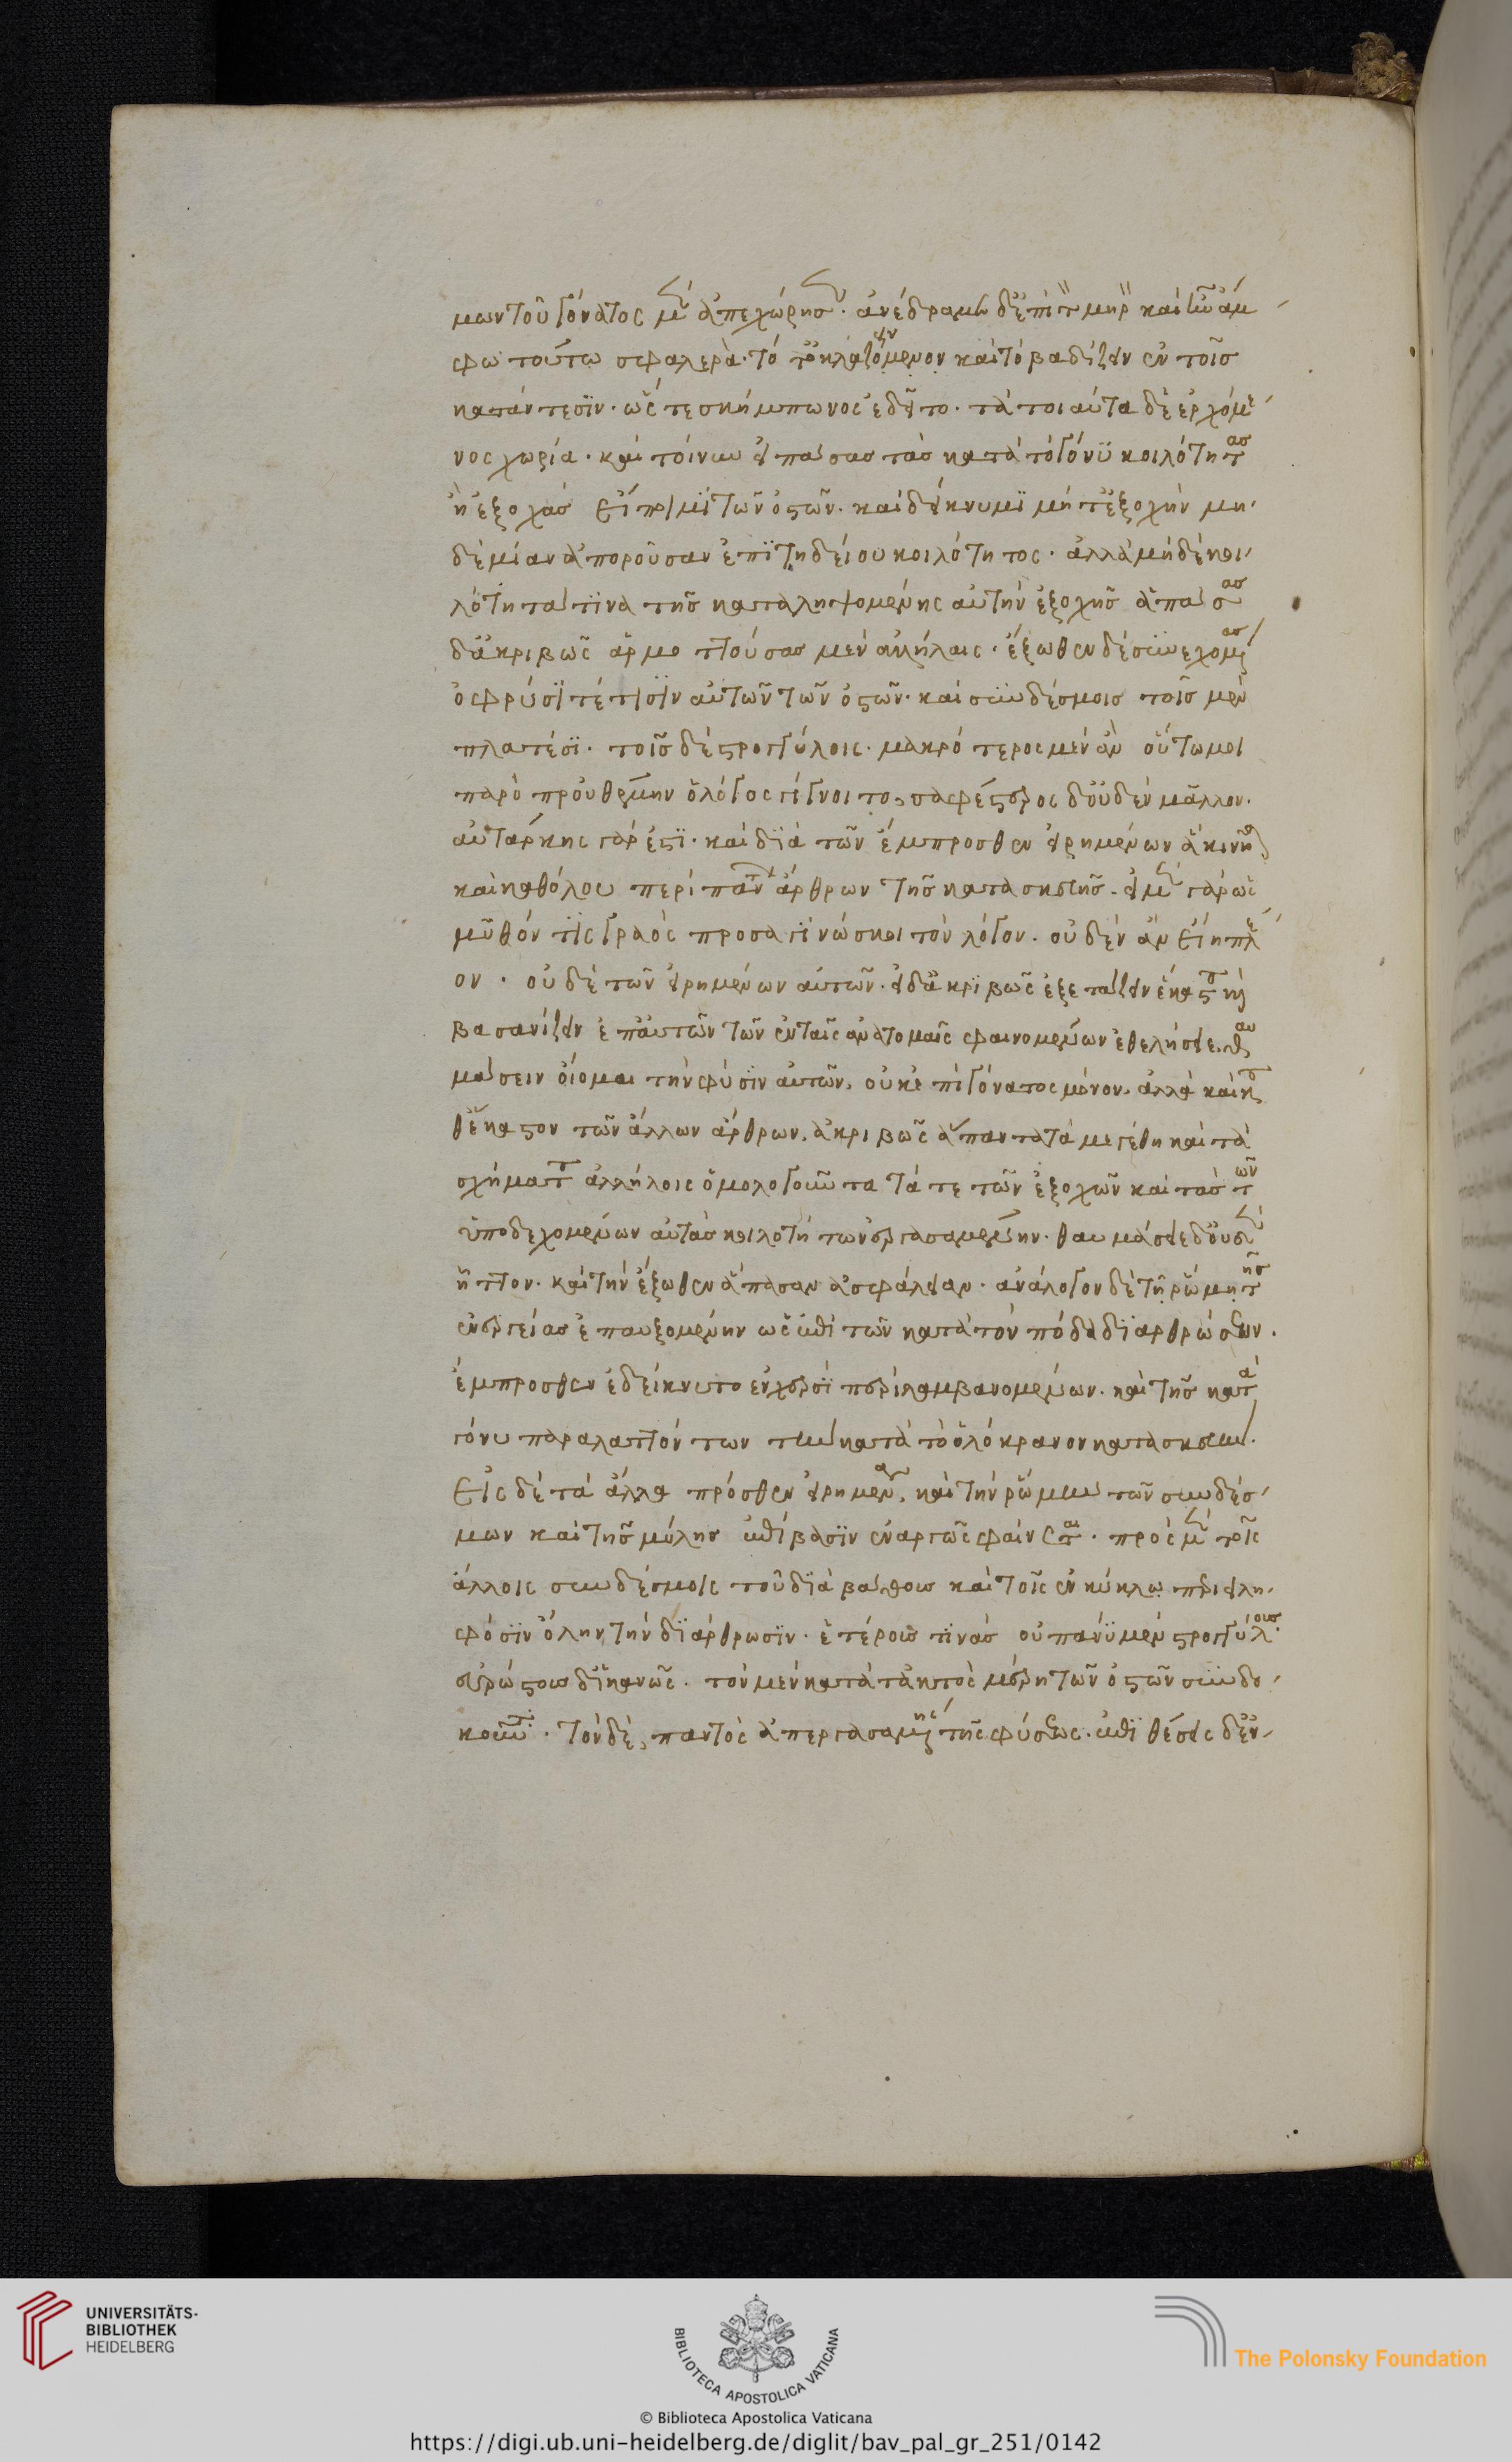 μων τοῦ γόνατος μὲν ἀπεχώρησεν. ἀνέδραμε δ' ἐπὶ τὸν μηρὸν καὶ ἦν ἀμ
φω τούτω σφαλερὰ. τό τ' ὀκλάζειν καὶ τὸ βαδίζειν ἐν τοῖσ
κατάντεσϊν. ὥς τε σκήμπωνος ἐδεῖτο. τὰ τοιαῦτα διερχόμε
νος χωρία. καὶ τοίνυν εἰ πάσας τὰσ κατὰ τὸ γόνϋ κοιλότητας
ἢ ἐξοχὰσ ἐπίοιμϊ τῶν ὀστῶν. καὶ δείκνυμϊ μήτ' ἐξοχὴν μη
δεμίαν ἀποροῦσαν ἐπϊτηδείου κοιλότητος. ἀλλὰ μηδὲ κοι
λότητά τϊνα τῆσ καταληψομένης αὐτὴν ἐξοχῆσ ἁπάσας
δ' ἀκριβῶς ἁρμοττούσασ μὲν ἀλλήλαις. ἔξωθεν δὲ σϋνεχομένας
ὀφρύσϊ τέ τισϊν αὐτῶν τῶν ὀστῶν. καὶ σϋνδέσμοισ τοῖσ μὲν
πλατέσϊ. τοῖσ δὲ στρογγύλοις. μακρότερος μὲν ἂν οὕτω μοι
παρὸ προὐθέμην ὁ λόγος γίγνοιτο, σαφέστερος δ' οὐδὲν μᾶλλον.
αὐτάρκης γάρ ἐστϊ. καὶ δϊὰ τῶν ἔμπροσθεν εἰρημένων
καὶ καθόλου περὶ πάντων ἄρθρων τῆσ κατασκευῆσ. εἰ μὲν γὰρ ὡς
μῦθόν τϊς γραὸς προσαγϊνώσκοι τὸν λόγον. οὐδὲν ἂν εἴη πλέ
ον. οὐδὲ τῶν εἰρημένων αὐτῶν. εἰ δ' ἀκρϊβῶς ἐξετάζειν ἕκαστον καὶ
βασανίζειν ἐπ' αὐτῶν τῶν ἐν ταῖς ἀνατομαῖς φαινομένων ἐθελήσειε. θαυ
μάσειν οἴομαι τὴν φύσϊν αὐτῶν, οὐκ ἐπὶ γόνατος μόνον. ἀλλὰ καὶ κα
θ' ἕκαστον τῶν ἄλλων ἄρθρων, ἀκριβῶς ἅπαντα τὰ μεγέθη καὶ τὰ
σχήματα ἀλλήλοις ὁμολογοῦντα τά τε τῶν ἐξοχῶν καὶ τὰσ τῶν
ὑποδεχομένων αὐτὰσ κοιλοτήτων ἐργασαμένην. θαυμάσειε δ' οὐδὲν
ἧττον. καὶ τὴν ἔξωθεν ἅπασαν ἀσφάλειαν. ἀνάλογον δὲ τῇ ῥώμῃ τῆσ
ἐνεργείασ ἐπαυξομένην ὡς ἐπὶ τῶν κατὰ τὸν πόδα δϊαρθρώσεων.
ἔμπροσθεν ἐδείκνυτο ἐν χερσὶ περιλαμβανομένων. καὶ τῆσ κατὰ
γόνυ παραλαττόντων τὴν κατὰ τὸ ὀλόκρανον κατασκευήν.
Εἰς δὲ τὰ ἄλλα πρόσθεν εἰρημένα, καὶ τὴν ῥώμην τῶν συνδέσ
μων καὶ τῆσ μύλησ ἐπίβασϊν ἐναργῶς φαίνεται. πρὸς μὲν τοῖς
ἄλλοις συνδέσμοις τοῦ δϊὰ βάθους καὶ τοῖς ἐν κύκλῳ περιειλη
φόσϊν ὅλην τὴν δϊάρθρωσϊν. ἑτέρους τϊνὰσ οὐ πάνϋ μὲν στρογγύλους.
εὐρώστους δ' ἱκανῶς. τὸν μὲν κατὰ τἀκτὸς μέρη τῶν ὀστῶν σϋνδο
κοῦντα. τὸν δὲ, παντὸς ἀπεργασαμένης τῆς φύσεως. ἐπὶ θέσεις δ' ἐν
UNIVERSITÄTS-
BIBLIOTHEK
HEIDELBERG
BIBLIOTECA APOSTOLICA VATICANA
The Polonsky Foundation
© Biblioteca Apostolica Vaticana
https://digi.ub.uni-heidelberg.de/diglit/bav_pal_gr_251/0142